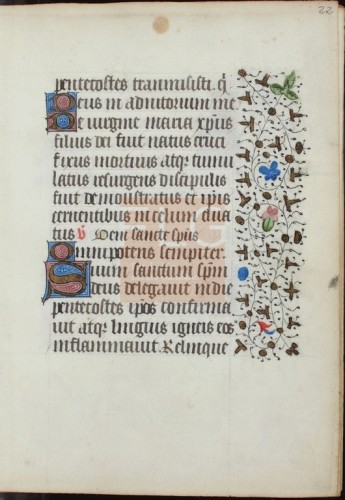 22
pentecostes tranmisisti. q̄
Deus in adiutorium me
De virgine maria xp̄us
filius dei fuit natus cruci
fixus mortuus atqꝫ tumu
latus resurgens discipulis
fuit demonstratus et ip̄is
cernentibus in celum eleua
tus v̄ Veni sancte sp̄us
Omnipotens sempiter.
Suum sanctum sp̄m
deus delegauit in die
pentecostes ip̄os confirma
uit atqꝫ linguis igneis eos
inflammauit. Relinque